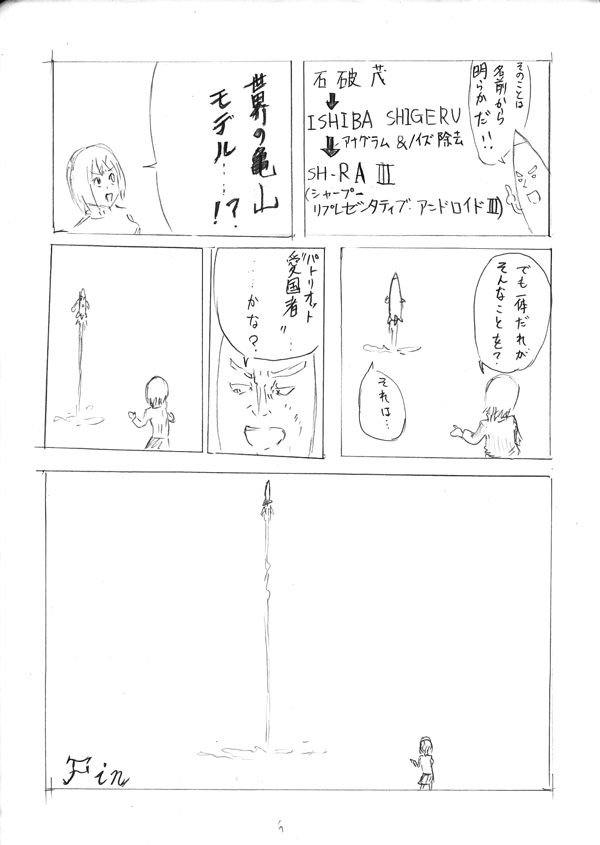 そのことは
名前から
明らかだ!!
石破茂
ISHIBA SHIGERU
アナグラム &ノイズ除去
SH-RA III
(シャープ-
リプレゼンタティブ・アンドロイドIII)
世界の亀山
モデル……!?
でも一体だれが
そんなことを?
それは…
パトリオット
"愛国者"…
……かな?
Fin